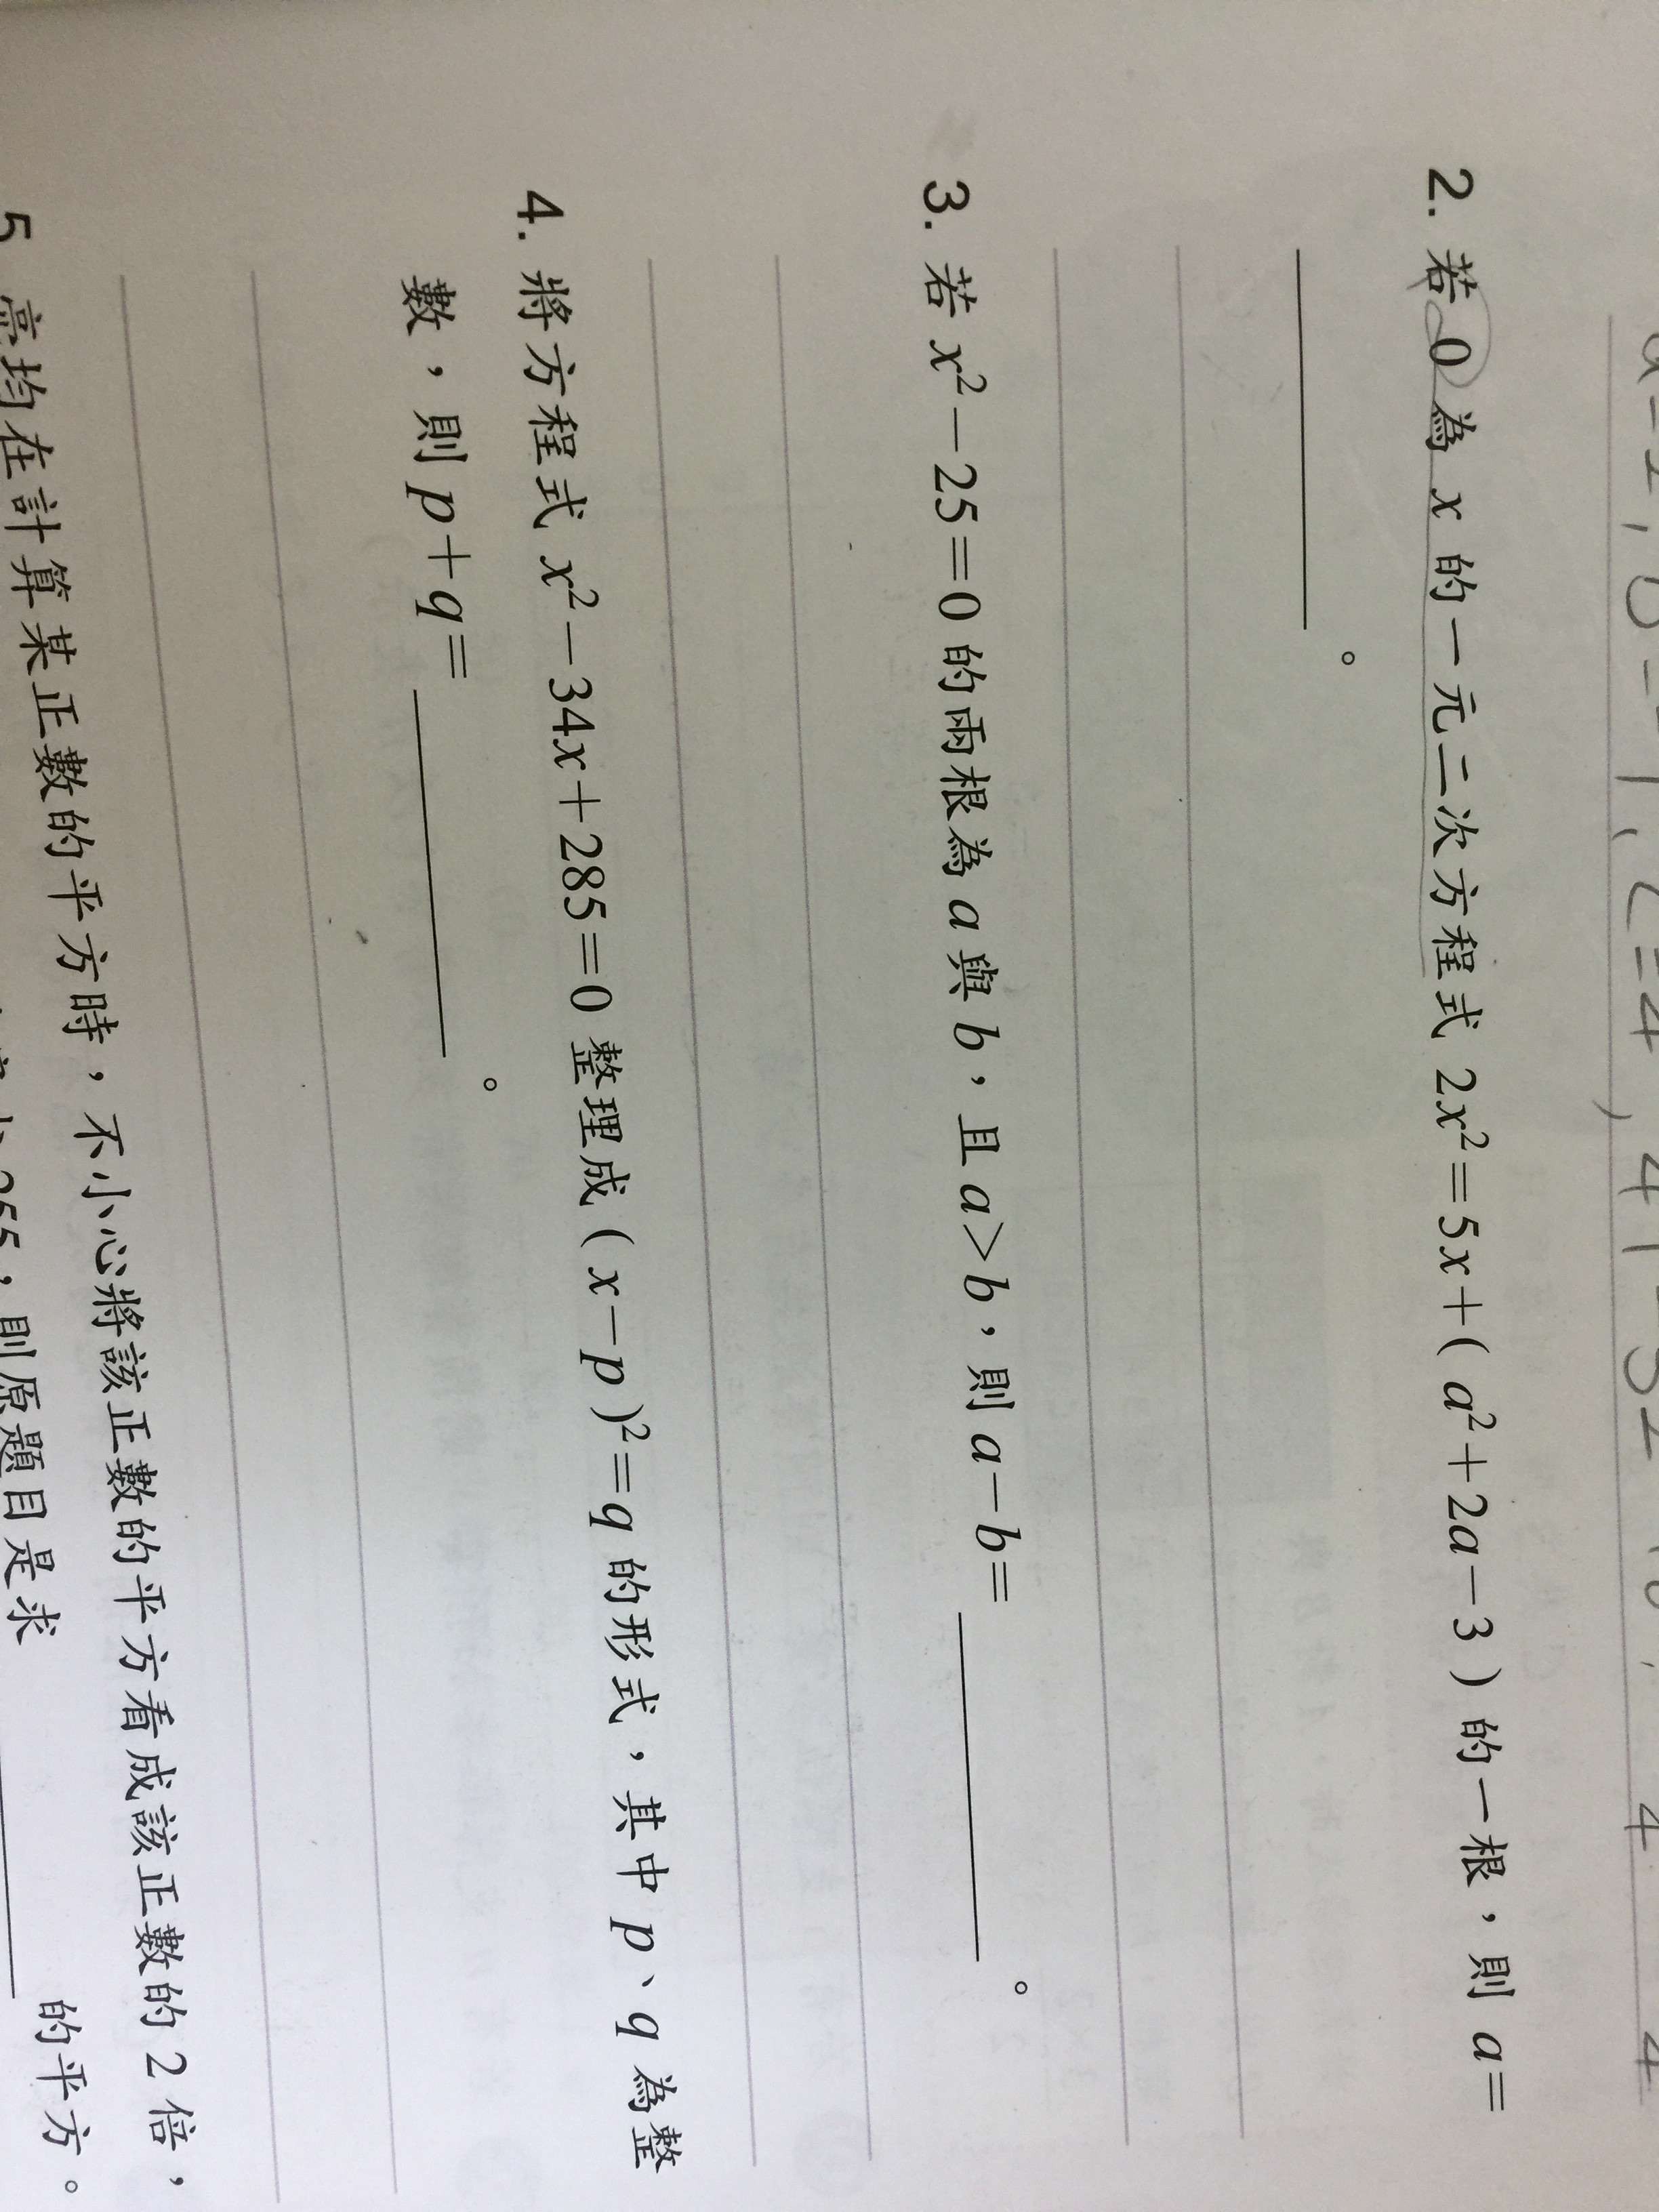 2. 若 0 為 x 的一元二次方程式 2x²=5x+(a²+2a-3) 的一根，則 a=
。
3. 若 x²-25=0 的兩根為 a 與 b，且 a>b，則 a-b=
。
4. 將方程式 x²-34x+285=0 整理成 (x-p)²=q 的形式，其中 p、q 為整
數，則 p+q=
。
5 均在計算某正數的平方時，不小心將該正數的平方看成該正數的 2 倍，
255，則原題目是求 的平方。